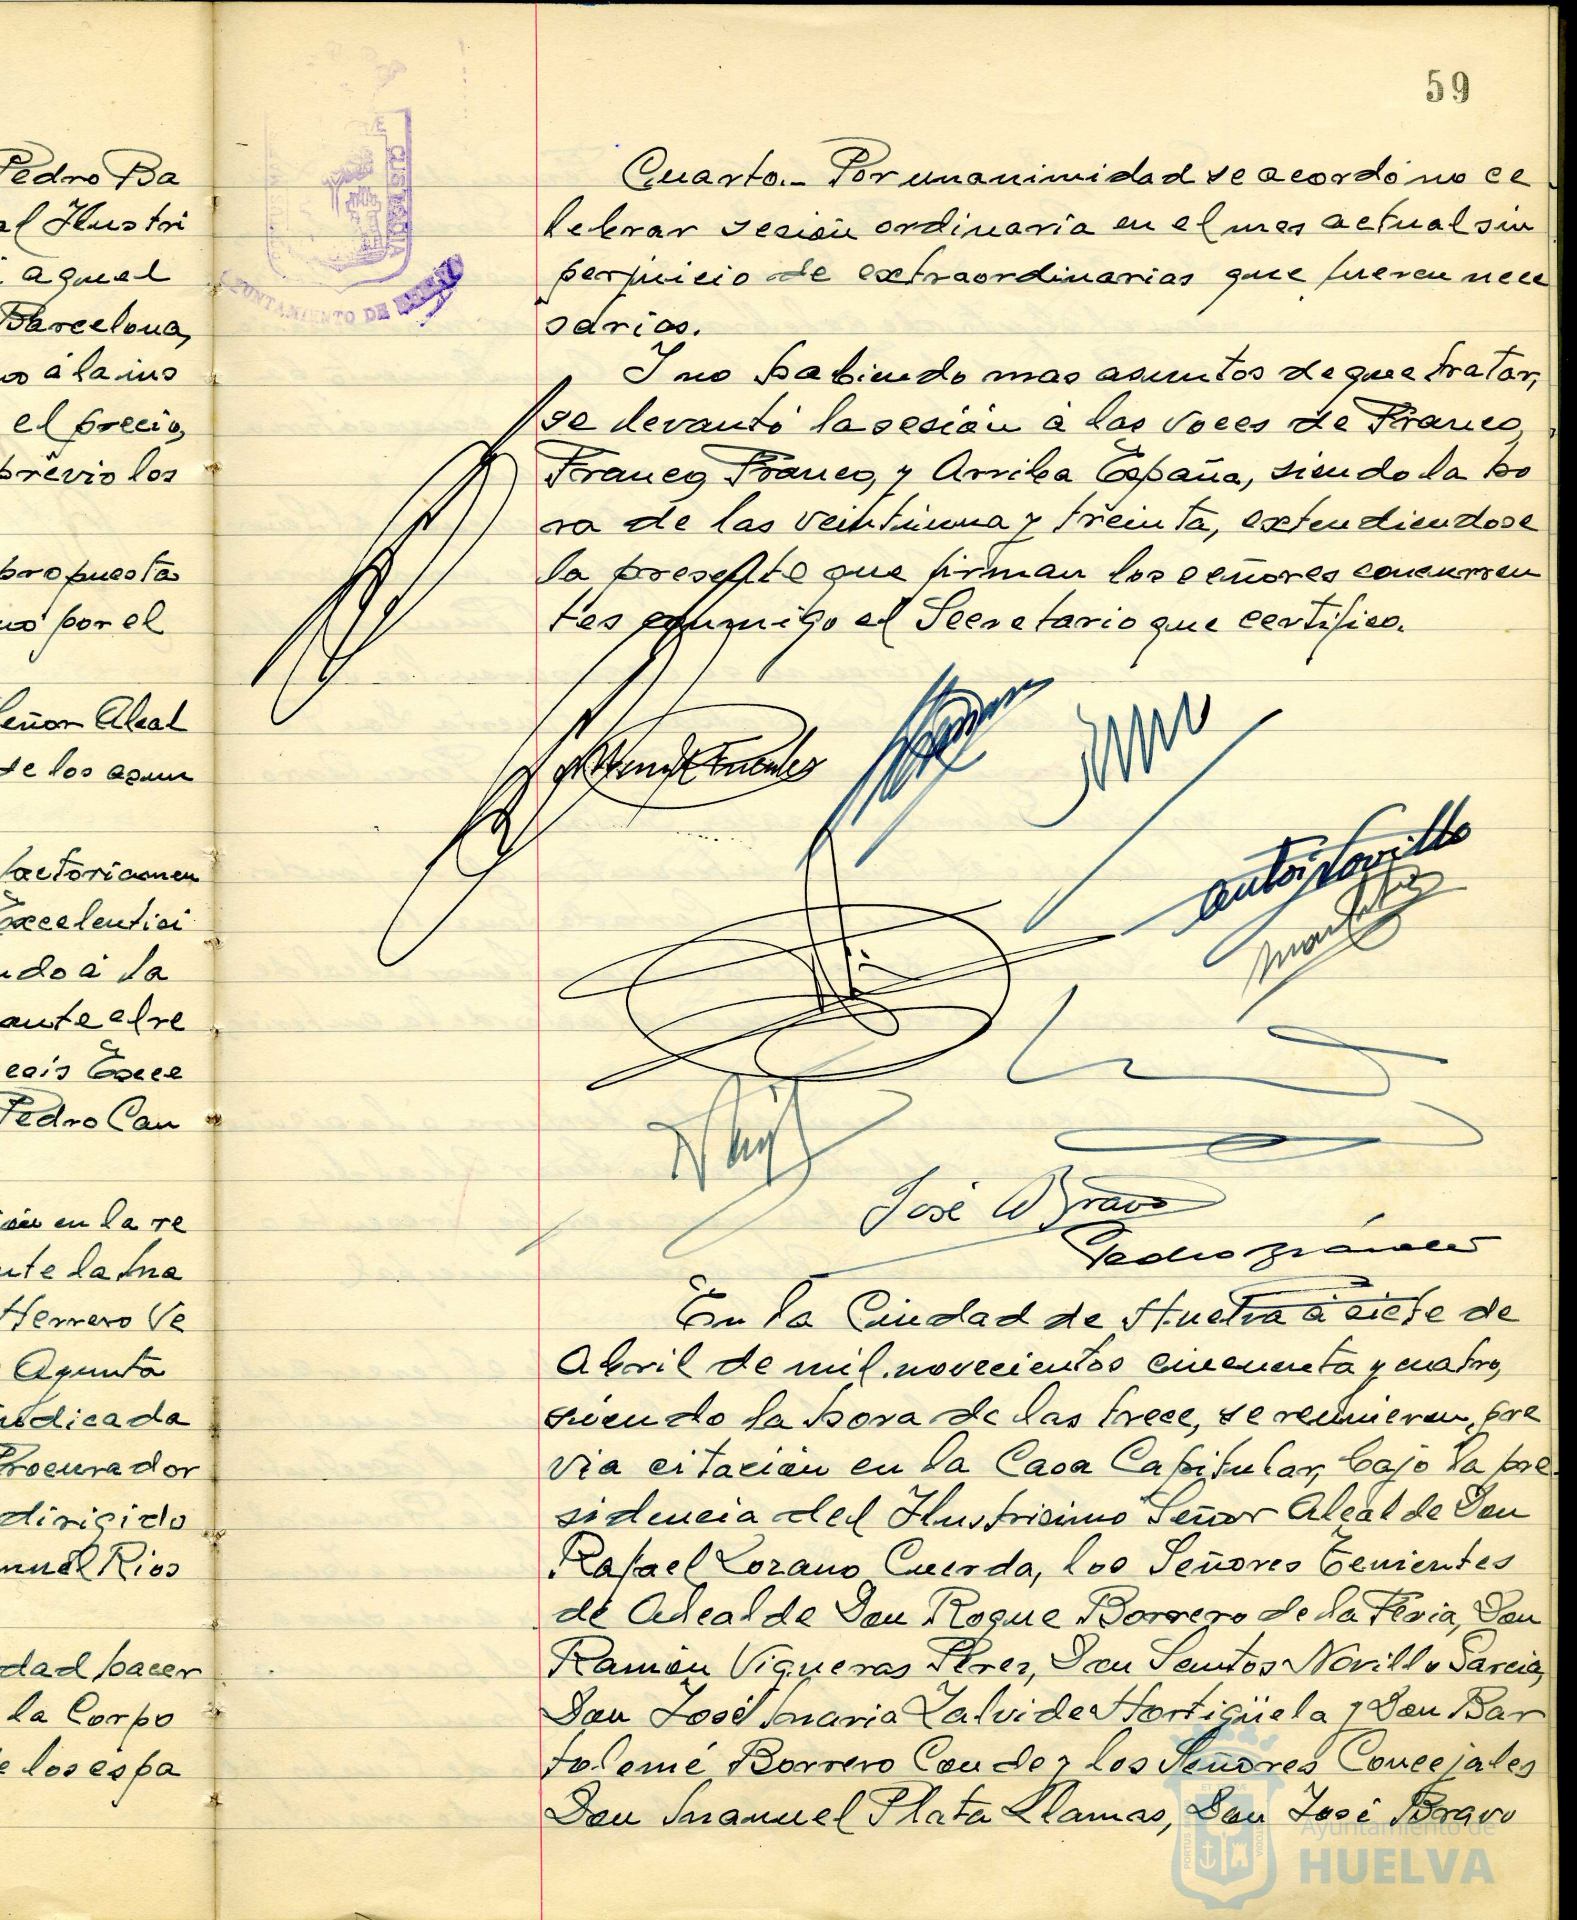 59
Pedro Ba
al Ilustri
aquel
Barcelona,
á la ins
el precio,
previo los
propuesta
por el
Señor Alcal
de los asun
factoriamen
Excelentisi
ndo á la
ante el re
Exce
Pedro Can
en la re
nte la Ma
Herrero Ve
Ayunta
indicada
Procurador
dirigido
anuel Rios
dad hacer
la Corpo
e los espa
CUSTODIA
AYUNTAMIENTO DE HUELVA
Cuarto.- Por unanimidad se acordó no ce
lebrar sesión ordinaria en el mes actual sin
perjuicio de extraordinarias que fueren nece
sarias.
Y no habiendo mas asuntos de que tratar,
se levantó la sesión á las voces de Franco,
Franco, Franco, y Arriba España, siendo la ho
ra de las veintiuna y treinta, extendiendose
la presente que firman los señores concurren
tes conmigo el Secretario que certifico.
Antº Novillo
José Bravo
Pedro
En la Ciudad de Huelva á siete de
Abril de mil novecientos cincuenta y cuatro,
siendo la hora de las trece, se reunieron, pre
via citación en la Casa Capitular, bajo la pre
sidencia del Ilustrisimo Señor Alcalde Don
Rafael Lozano Cuerda, los Señores Tenientes
de Alcalde Don Roque Borrero de la Feria, Don
Ramón Vigueras Pérez, Don Santos Novillo Garcia,
Don José Maria Zalvide Hortigüela y Don Bar
tolomé Borrero Conde y los Señores Concejales
Don Manuel Plata Llamas, Don José Bravo
Ayuntamiento de
HUELVA